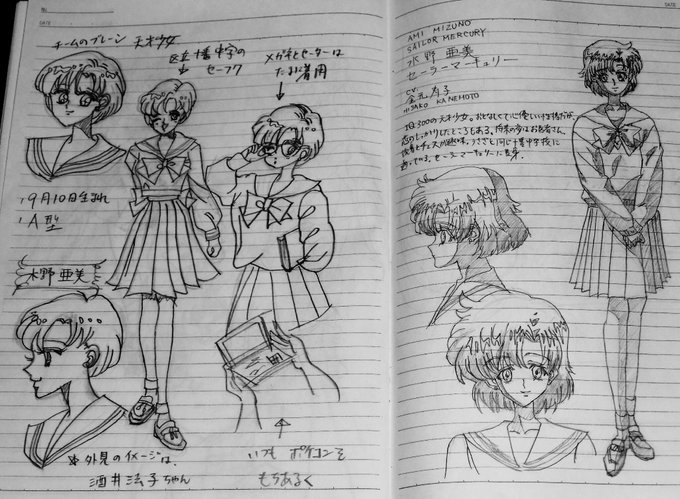 チームのブレーン 天才少女
区立十番中学の
セーラフク
メガネとセーターは
たまに着用
9月10日生まれ
A型
水野亜美
※外見のイメージは、
酒井法子ちゃん
いつも ポケコンを
もちあるく
DATE
AMI MIZUNO
SAILOR MERCURY
水野亜美
セーラーマーキュリー
CV:
金元寿子
HISAKO KANEMOTO
IQ300の天才少女。おとなしくて心優しいけど
芯のしっかりしたところもある。将来の夢はお医者さん。
読書とチェスが趣味。うさぎと同じ十番中学校に
通っている。セーラーマーキュリーに変身。
DATE